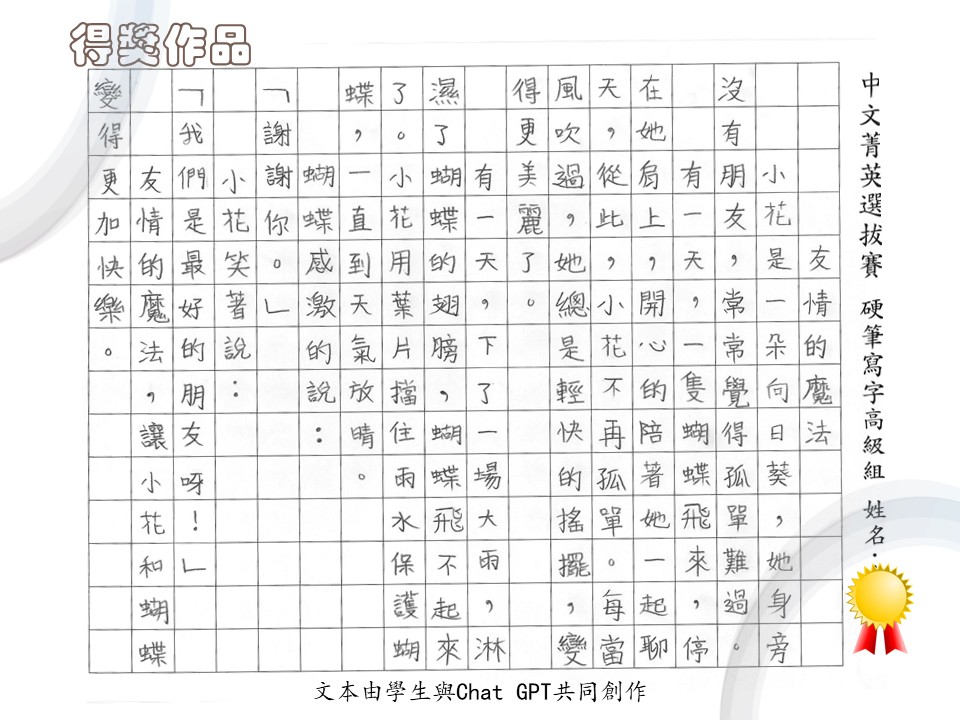 得獎作品
中文菁英選拔賽 硬筆寫字高級組 姓名：
友情的魔法
小花是一朵向日葵，她身旁
沒有朋友，常常覺得孤單難過。
有一天，一隻蝴蝶飛來，停
在她肩上，開心的陪著她一起聊
天，從此，小花不再孤單。每當
風吹過，她總是輕快的搖擺，變
得更美麗了。
有一天，下了一場大雨，淋
濕了蝴蝶的翅膀，蝴蝶飛不起來
了。小花用葉片擋住雨水保護蝴
蝶，一直到天氣放晴。
蝴蝶感激的說：
「謝謝你。」
小花笑著說：
「我們是最好的朋友呀！」
友情的魔法，讓小花和蝴蝶
變得更加快樂。
文本由學生與Chat GPT共同創作